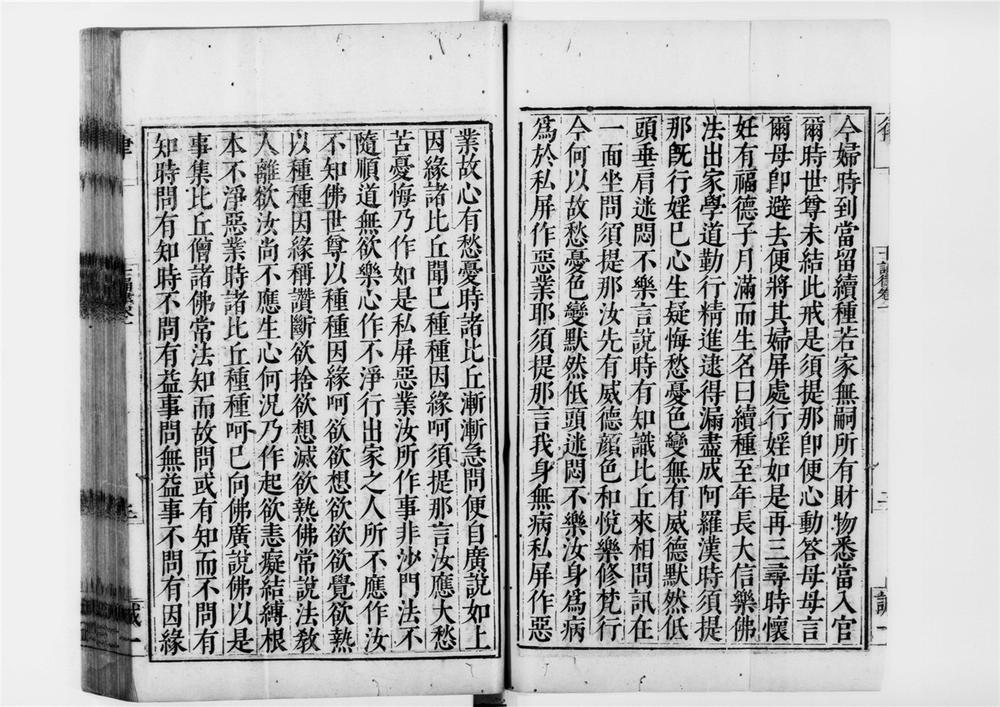 今婦時到當留續種若家無嗣所有財物悉當入官
爾時世尊未結此戒是須提那卽便心動答母母言
爾母卽避去便將其婦屏處行婬如是再三尋時懷
妊有福德子月滿而生名曰續種至年長大信樂佛
法出家學道勤行精進逮得漏盡成阿羅漢時須提
那旣行婬已心生疑悔愁憂色變無有威德默然低
頭垂肩迷悶不樂言說時有知識比丘來相問訊在
一面坐問須提那汝先有威德顏色和悅樂修梵行
今何以故愁憂色變默然低頭迷悶不樂汝身爲病
爲於私屏作惡業耶須提那言我身無病私屏作惡
業故心有愁憂時諸比丘漸漸急問便自廣說如上
因緣諸比丘聞已種種因緣呵須提那言汝應大愁
苦憂悔乃作如是私屏惡業汝所作事非沙門法不
隨順道無欲樂心作不淨行出家之人所不應作汝
不知佛世尊以種種因緣呵欲欲想欲欲欲覺欲熱
以種種因緣稱讚斷欲捨欲想滅欲熱佛常說法敎
人離欲汝尚不應生心何況乃作起欲恚癡結縛根
本不淨惡業時諸比丘種種呵已向佛廣說佛以是
事集比丘僧諸佛常法知而故問或有知而不問有
知時問有知時不問有益事問無益事不問有因緣